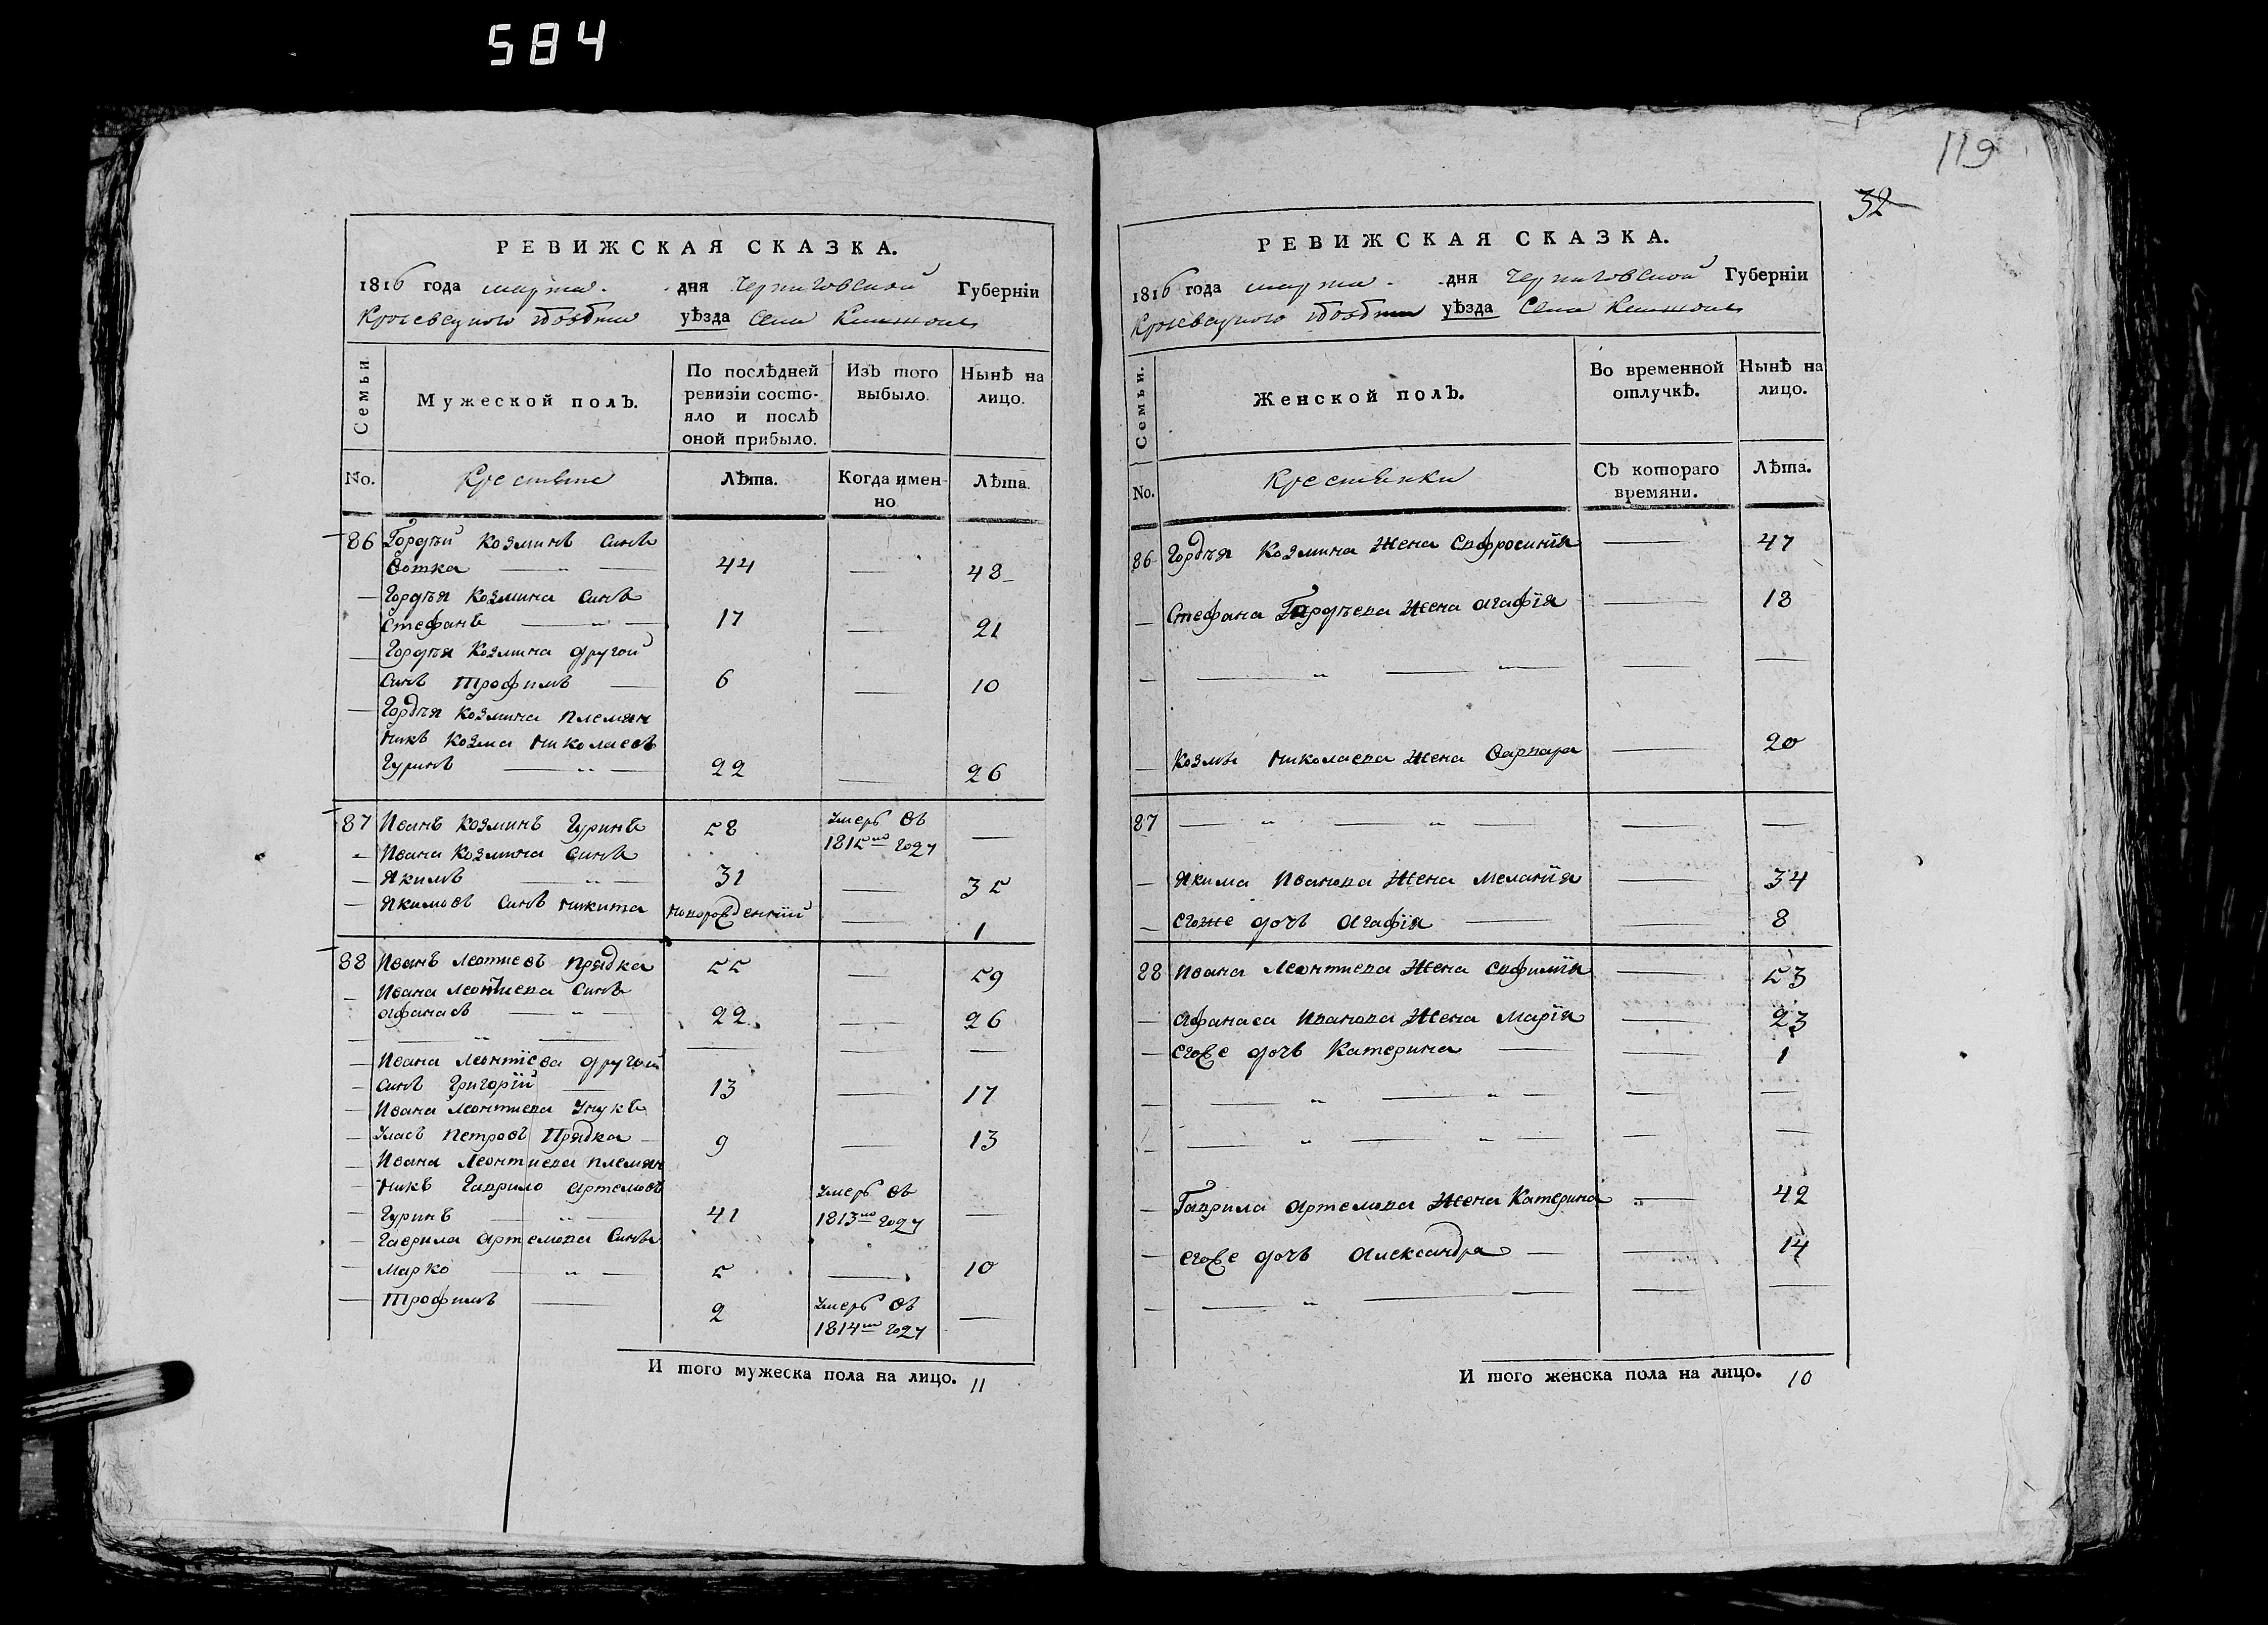 584
РЕВИЖСКАЯ СКАЗКА.
1816 года марта дня Черниговской Губерніи
уѣзда Села
Семьи
Мужеской полъ.
По послѣдней ревизіи состо-
яло и послѣ
оной прибыло.
Изъ того выбыло.
Нынѣ на лицо.
No. Крестьяне Лѣта. Когда имен-
но Лѣта.
86 Гордѣй Козминъ Синъ
Вотка 44 48
Гордѣя Козмина Синъ
Стефанъ 17 21
Гордѣя Козмина другой
Синъ Трофимъ 6 10
Гордѣя Козмина племян
никъ Козма Николаевъ
Гуринъ 22 26
87 Иванъ Козминъ Гуринъ 58 умеръ въ
1815мъ году
Ивана Козмина Синъ
Якимъ 31 35
Якимовъ Синъ Никита новорожденній 1
88 Иванъ Леотиевъ Прядка 55 59
Ивана Леонтиева Синъ
Афанасъ 22 26
Ивана Леонтіева другой
Синъ Григорій 13 17
Ивана Леонтиева Унукъ
Уласъ Петровъ Прядка 9 13
Ивана Леонтиева племян
никъ Гаврило Артемовъ
Гуринъ 41 умеръ въ
1813мъ году
Гаврила Артемова Синъ
Марко 5 10
Трофимъ 2 умеръ въ
1814мъ году
И того мужеска пола на лицо. 11
119
32
РЕВИЖСКАЯ СКАЗКА.
1816 года марта дня Черниговской Губерніи
уѣзда Села
Семьи.
Женской полъ.
Во временной отлучкѣ.
Нынѣ на лицо.
No. Крестьянки Съ котораго
времяни. Лѣта.
86 Гордѣя Козмина Жена Евфросинія 47
Стефана Гордѣева Жена Агафія 18
Козмы Николаева Жена Варвара 20
87
Якима Иванова Жена Меланія 34
Егоже дочъ Агафія 8
88 Ивана Леонтиева Жена Евфимія 53
Афанаса Иванова Жена Марія 23
Егоже дочъ Катерина 1
Гаврила Артемова Жена Катерина 42
Егоже дочъ Александра 14
И того женска пола на лицо. 10